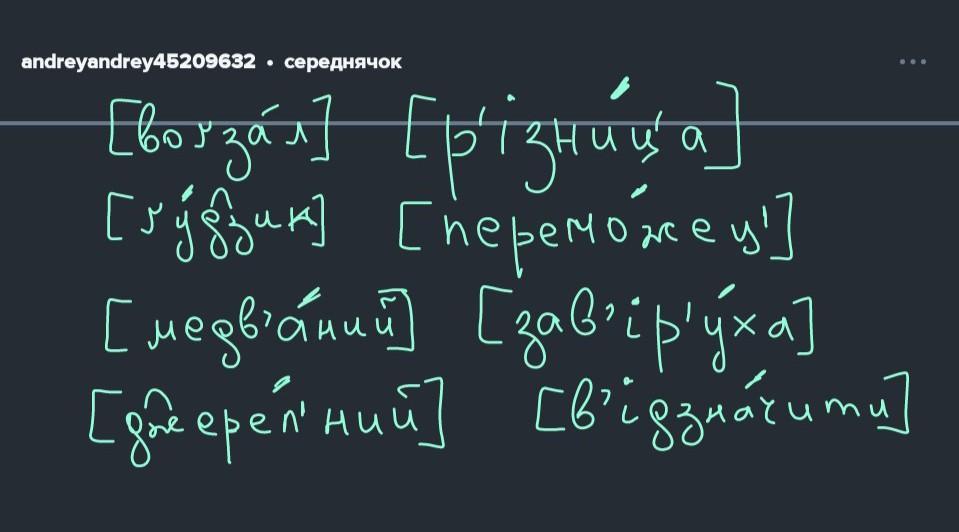 andreyandrey45209632 • середнячок
[вогза́л] [р'ізни́ц'а]
[ґу́д͡зик] [перемо́жец']
[медв'а́ний] [зав'ір'у́ха]
[д͡жере́л'ний] [в'ідзна́чити]